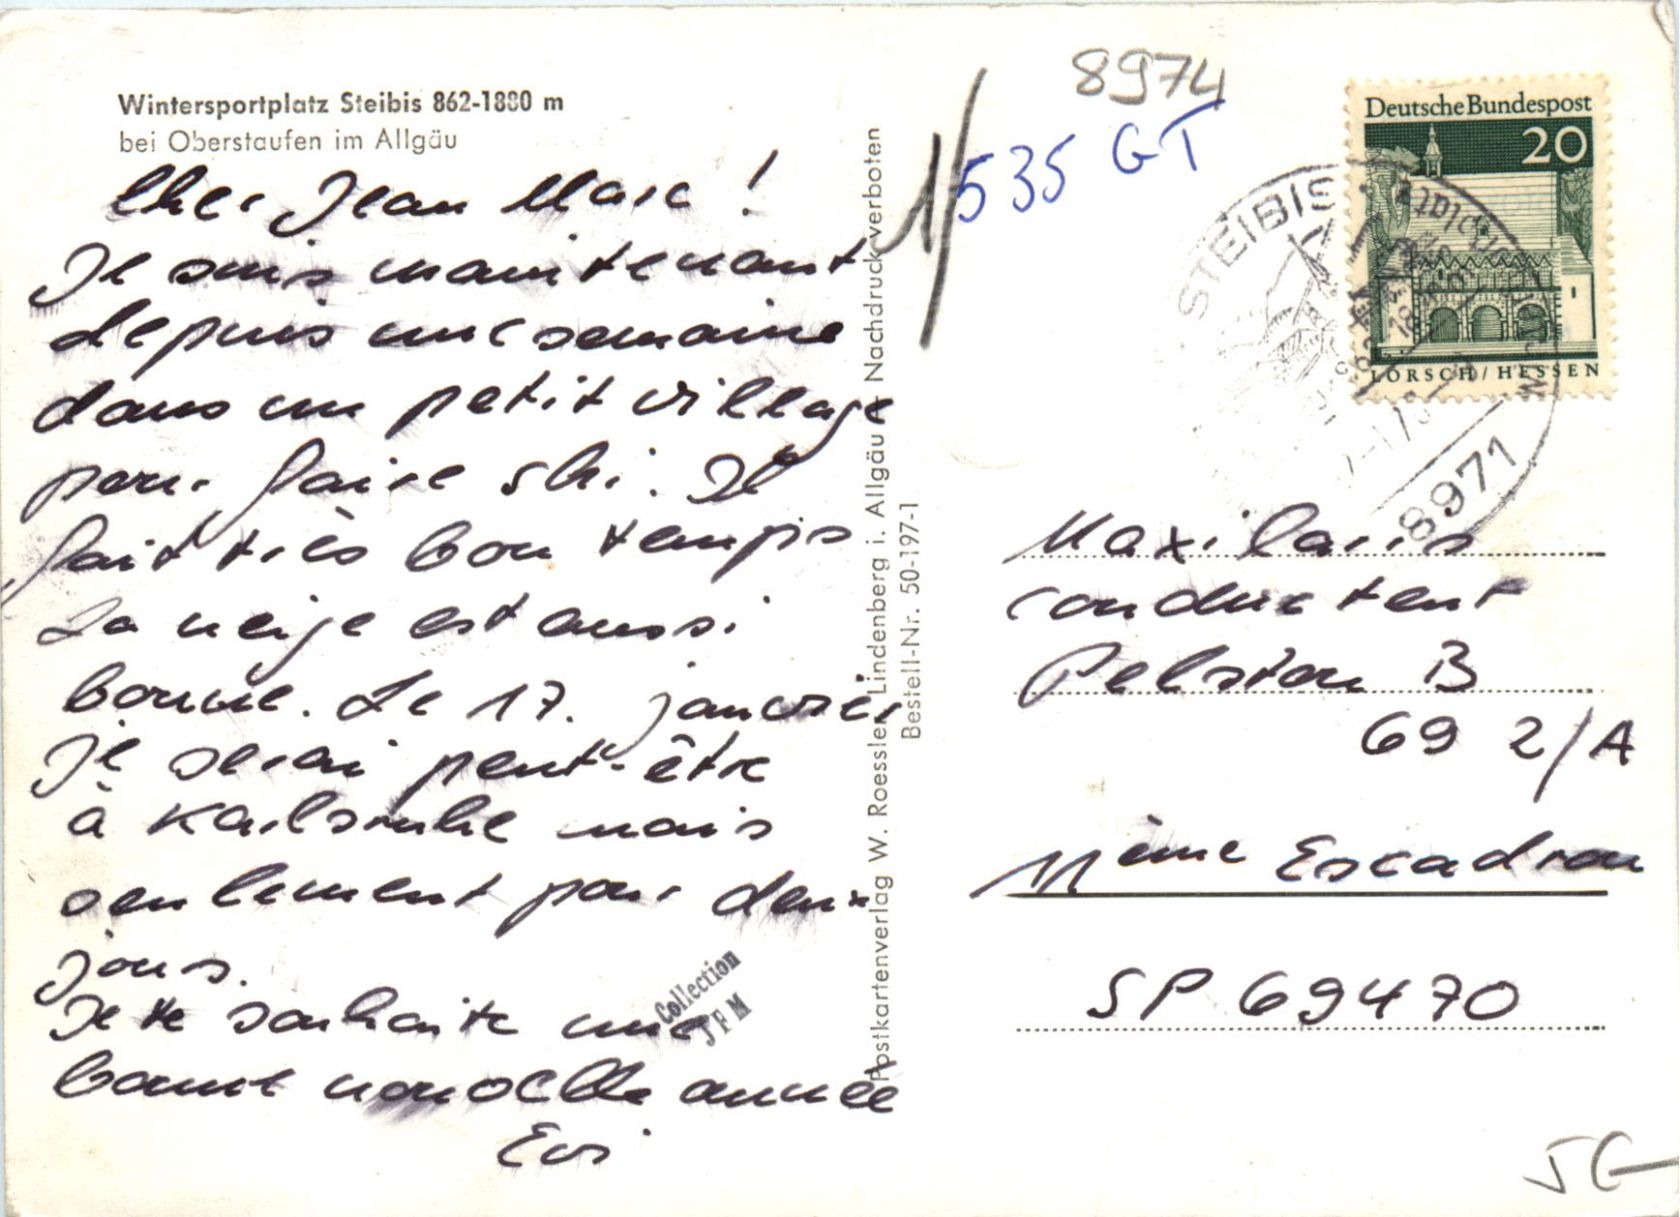 Wintersportplatz Steibis 862-1880 m
bei Oberstaufen im Allgäu
Cher Jean Marc !
Je suis maintenant
depuis une semaine
dans un petit village
pour faire ski. Il
fait très bon temps
La neige est aussi
bonne. Le 17. janvier
je serai peut-être
à Karlsruhe mais
seulement pour deux
jours.
Je te souhaite une
bonne nouvelle année
Evi
Collection
JFM
Postkartenverlag W. Roessler Lindenberg i. Allgäu Nachdruck verboten
Bestell-Nr. 50-197-1
8974
1/535 GT
Deutsche Bundespost
20
LORSCH/HESSEN
STEIBIS
8971
conducteur
Peloton B
69 2/A
11ème Escadron
SP 69470